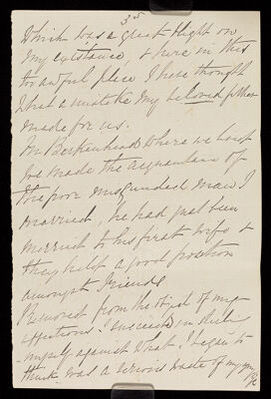 35
Which was a great blight on
my existance, & here in this
to awful place I have thought
what a mistake my beloved father
made for us.
In Birkenhead where we lived
we made the acquaintance of
the poor misguided man I
married, he had just been
married to his first wife &
they held a good position
amongst friends
Removed from the object of my
affections I succeeded in
myself against what I began to
think was a serious waste of my
life